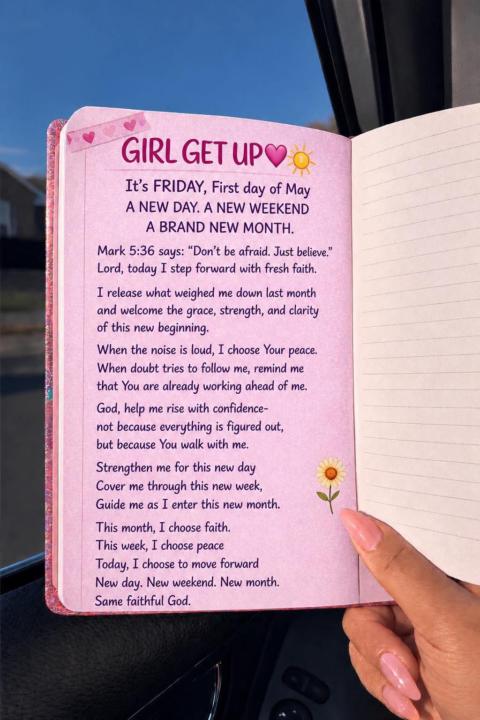 GIRL GET UP🩷☀️
It's FRIDAY, First day of May
A NEW DAY. A NEW WEEKEND
A BRAND NEW MONTH.
Mark 5:36 says: "Don't be afraid. Just believe."
Lord, today I step forward with fresh faith.
I release what weighed me down last month
and welcome the grace, strength, and clarity
of this new beginning.
When the noise is loud, I choose Your peace.
When doubt tries to follow me, remind me
that You are already working ahead of me.
God, help me rise with confidence-
not because everything is figured out,
but because You walk with me.
Strengthen me for this new day
Cover me through this new week,
Guide me as I enter this new month.
This month, I choose faith.
This week, I choose peace
Today, I choose to move forward
New day. New weekend. New month.
Same faithful God.